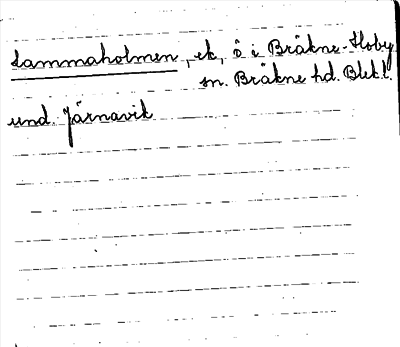 Lammaholmen, ek, ö i Bräkne-Hoby
sn. Bräkne hd. Blek.l.
und. Järnavik